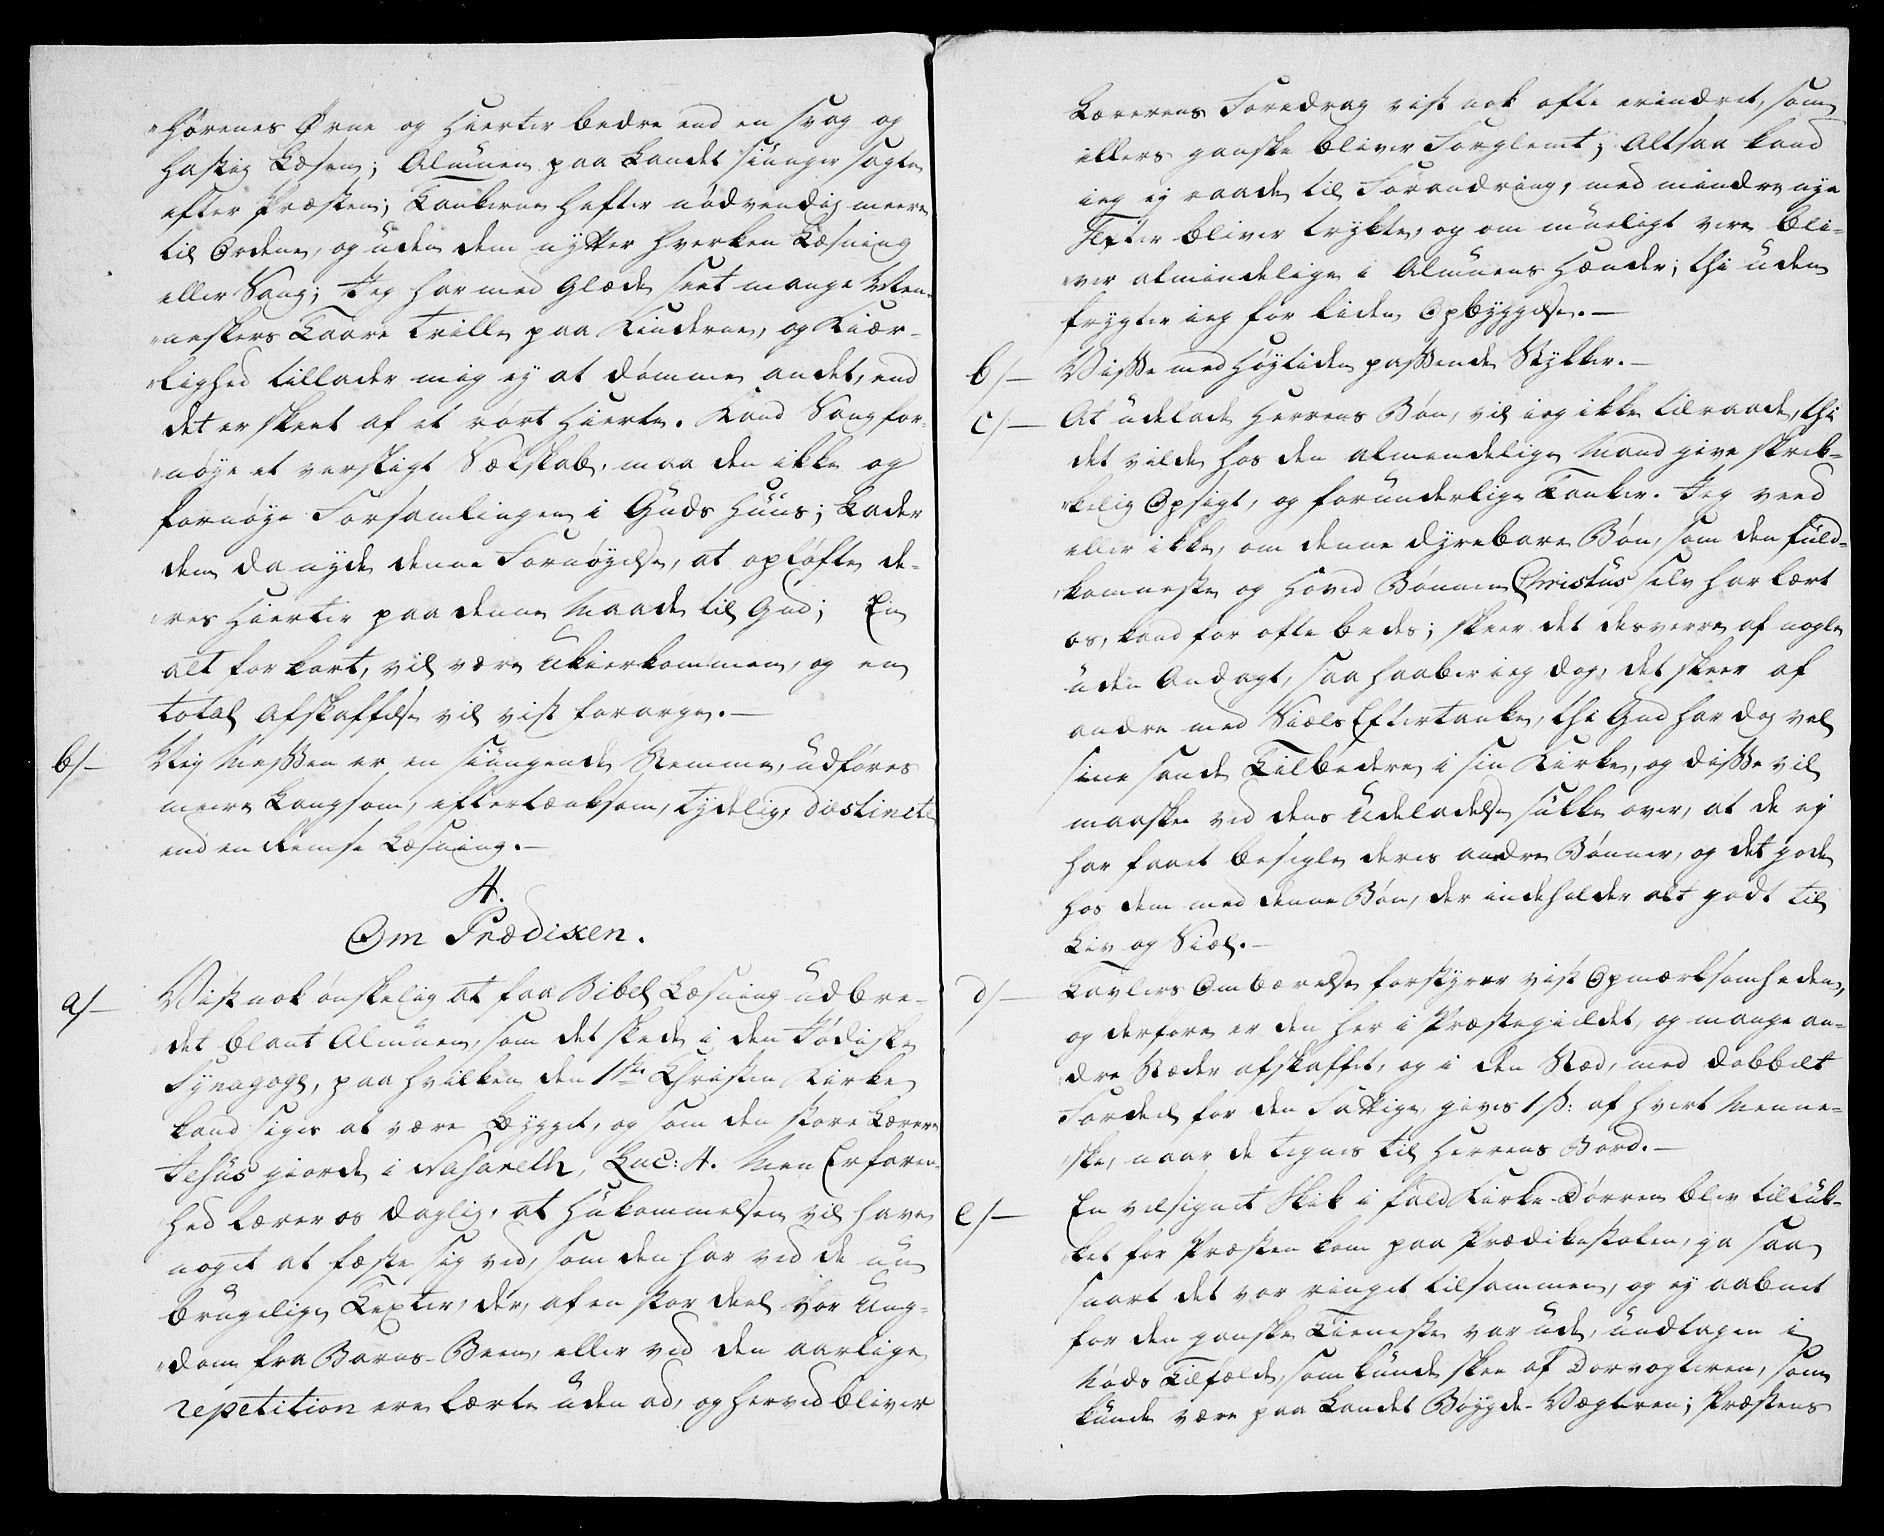 hørenes Ørne og Hierter bedre end en svag og
hastig Læsen; Almuen paa Landet siunger sagte
efter Præsten; Tankerne hefter nødvendig meere
til Ordene, og uden dem nytter hverken Læsning
eller Sang; Jeg har med Glæde seet mange Men-
neskers Taare trille paa Kinderne, og Kiær-
lighed tillader mig ey at dømme andet, end
det er skeet af et rørt Hierte. Kand Sang for-
nøye et verdsligt Selskab, maa den ikke og
fornøye Forsamlingen i Guds Huus; Lader
dem da nyde denne Fornøyelse, at opløfte de-
res Hierter paa denne Maade til Gud; En
alt for kort, vil være Ukierkommen, og en
total Afskaffelse vil vist forarge.-
b/- Mig Messen er en siungende Stemme, udføres
meere Langsom, eftertænksom, tydelig, distincte
end en Remse Læsning.-
4.
Om Prædixen.
a/- Vist nok ønskelig at faa Bibel Læsning udbre-
det blant Almuen, som det skede i den Jødiske
Synagoge, paa hvilken den 1ste Christen Kirke
kand siges at være bygget, og som den store Lærere
Jesus giorde i Nasareth, Luc: 4. Men Erfaren-
hed lærer os daglig, at Hukommelsen vil have
noget at fæste sig ved, som den har ved de nu
brugelige Texter, der, af en stor deel vor Ung-
dom fra Barns-Been, eller ved den aarlige
repetition ere lærte uden ad, og herved bliver
Lærerens Foredrag vist nok ofte erindret, som
ellers ganske bliver Forglemt; Altsaa kand
ieg ey raade til Forandring, med mindre nye
Texter bliver trykte, og om mueligt være bli-
ver almindelige i Almuens Hænder; thi uden
frygter ieg for liden Opbyggelse.-
b/- Visse med Høytiden passende Stykker.-
c/- At udelade Herrens Bøn, vil ieg ikke tilraade, thi
det vilde hos den almendelige Mand give skrek-
kelig Opsigt, og forunderlige Tanker. Jeg veed
eller ikke, om denne dyrebare Bøn, som den fuld-
komneste og Hoved Bønnen Christus selv har lært
os, kand for ofte bedes; skeer det desverre af nogle
uden Andagt, saa haaber ieg dog, det skeer af
andre med Siæls Eftertanke, thi Gud har dog vel
sine sande Tilbedere i sin Kirke, og disse vil
maaskee ved dens Udeladelse sukke over, at de ey
har faaet besigle deris andre Bønner, og det gode
hos dem med denne Bøn, der indeholder alt godt til
Liv og Siæl.-
d/- Tavlers Ombærelse forstyrer vist Opmærksomheden,
og derfore er den her i Præstegieldet, og mange an-
dre Stæder afskaffet, og i den Sted, med dobbelt
Fordeel for den Fattige, gives 1 ß: af hvert Menne-
ske, naar de tegnes til Herrens Bord.-
e/- En velsignet Skik i fald Kirke-Dørren blev tilluk-
ket før Præsten kom paa Prædikestolen, ja saa
snart det var ringet tilsammen, og ey aabnet
før den ganske Tieneste var ude, undtagen i
Nøds Tilfælde, som kunde skee af Dørvogteren, som
kunde være paa Landet Bøygde-Vægteren; Præstens